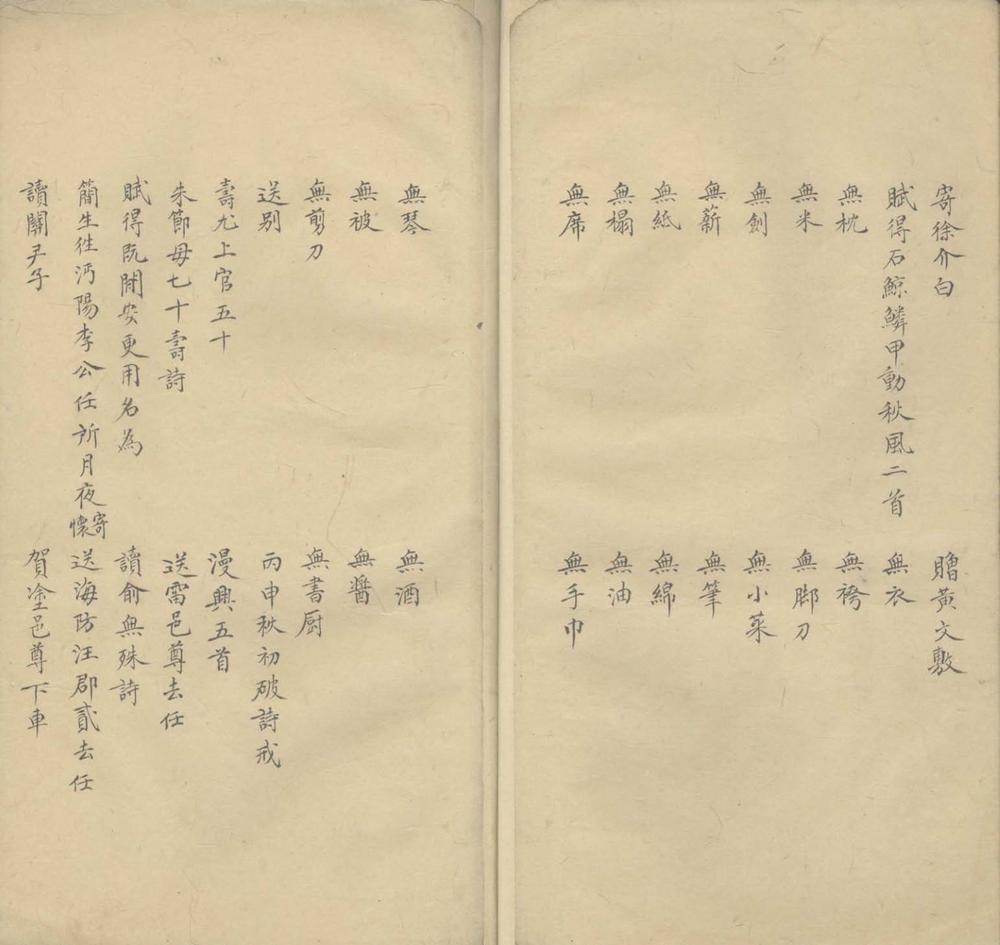 寄徐介白
贈黃文敷
賦得石鯨鱗甲動秋風二首
無衣
無枕
無袴
無米
無腳刀
無劍
無小菜
無薪
無筆
無紙
無綿
無榻
無油
無席
無手巾
無琴
無酒
無被
無醬
無剪刀
無書厨
送别
丙申秋初破詩戒
壽尤上官五十
漫興五首
朱節母七十壽詩
送雷邑尊去任
賦得既閒安更用名為
讀俞無殊詩
簡生徃沔陽李公任所月夜寄懷
送海防汪郡貳去任
讀關尹子
賀塗邑尊下車